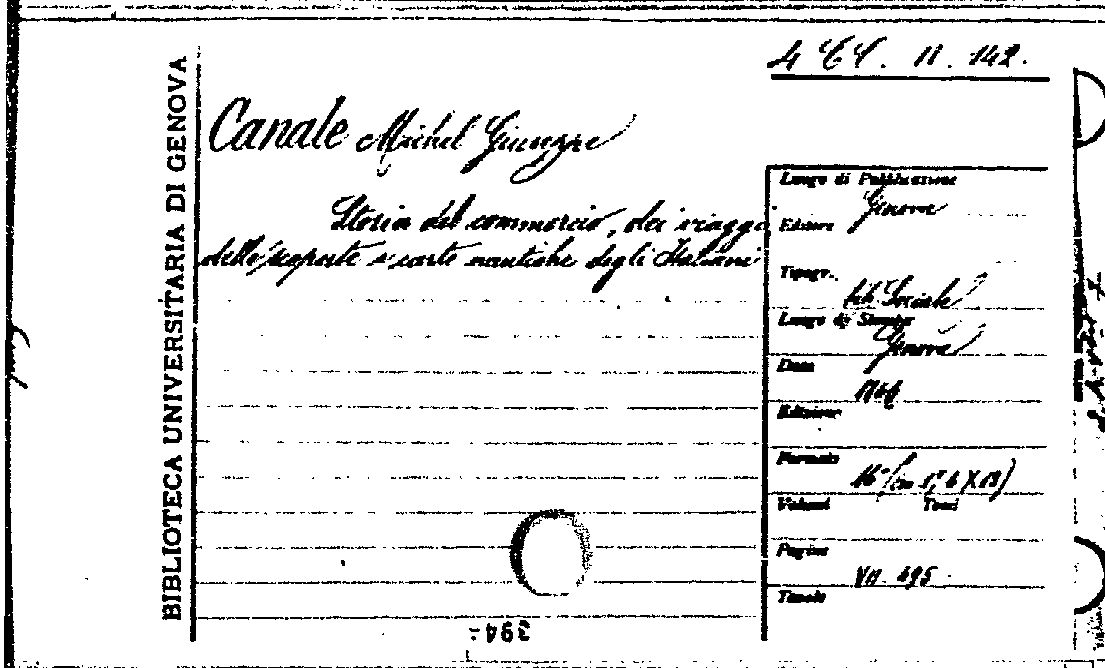 4 C.C. II. 142.
BIBLIOTECA UNIVERSITARIA DI GENOVA
Canale Michel Giuseppe
Storia del commercio, dei viaggi,
delle scoperte e carte nautiche degli Italiani
Luogo di Pubblicazione
Genova
Editore
Tipogr.
Sociale
Luogo di Stampa
Genova
Data
Edizione
Formato
16° (cm
Volumi Tomi
Pagine
VII. 495
Tavole
394.